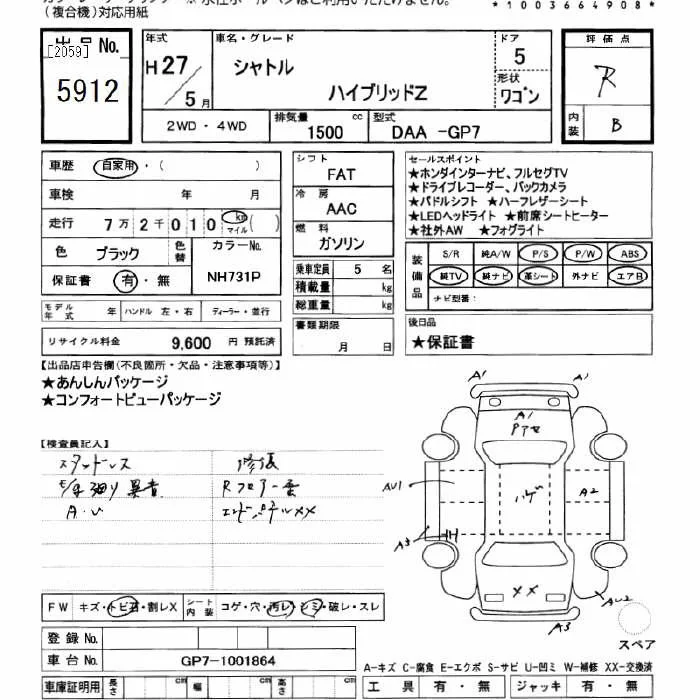 (複合機)対応用紙
*1003664908*
出品No.
[2059]
5912
年式
H27/5月
車名・グレード
シャトル
ハイブリッドZ
ドア
5
形状
ワゴン
評価点
R
内装
B
2WD・4WD
排気量
1500
cc
型式
DAA -GP7
車歴
自家用・( )
車検 年 月
走行 7万2千010 km マイル( )
色
ブラック
色替
カラーNo.
NH731P
保証書
有・無
モデル年式 年
ハンドル 左・右
ディーラー・並行
リサイクル料金 9,600 円 預託済
シフト
FAT
冷房
AAC
燃料
ガソリン
乗車定員 5 名
積載量 kg
総重量 kg
書類期限
月 日
セールスポイント
★ホンダインターナビ、フルセグTV
★ドライブレコーダー、バックカメラ
★パドルシフト ★ハーフレザーシート
★LEDヘッドライト ★前席シートヒーター
★社外AW ★フォグライト
装備品
S/R 純A/W P/S P/W ABS
純TV 純ナビ 革シート 外ナビ エアB
ナビ型番:
後日品
★保証書
【出品店申告欄(不良箇所・欠品・注意事項等)】
★あんしんパッケージ
★コンフォートビューパッケージ
【検査員記入】
スタッドレス
修復
異音
Rフロアー
A.U
エンドパネルXX
A1
A1
A1
ハゲ
AU1
A2
A3
XX
AU2
A3
スペア
FW
キズ・トビ石・割レX
シート内装
コゲ・穴・汚レ・シミ・破レ・スレ
登録No.
車台No.
GP7-1001864
車庫証明用
長さ cm
幅 cm
高さ cm
A-キズ C-腐食 E-エクボ S-サビ U-凹ミ W-補修 XX-交換済
工具 有・無
ジャッキ 有・無